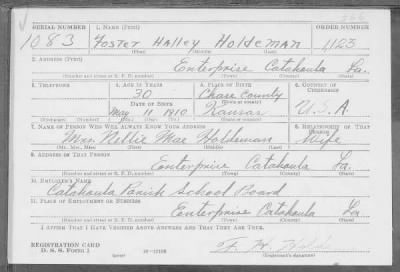 SERIAL NUMBER 1. NAME (Print) ORDER NUMBER
1083 Foster Halley Holdeman 1123
(First) (Middle) (Last)
2. ADDRESS (Print)
Enterprise Catahoula La.
(Number and street or R. F. D. number) (Town) (County) (State)
3. TELEPHONE 4. AGE IN YEARS 5. PLACE OF BIRTH 6. COUNTRY OF CITIZENSHIP
30 Chase County
DATE OF BIRTH (Town or county)
May 11 1910 Kansas U.S.A
(Mo.) (Day) (Yr.) (State or country)
7. NAME OF PERSON WHO WILL ALWAYS KNOW YOUR ADDRESS 8. RELATIONSHIP OF THAT PERSON
Mrs. Nellie Mae Holdeman Wife
(Mr., Mrs., Miss) (First) (Middle) (Last)
9. ADDRESS OF THAT PERSON
Enterprise Catahoula La.
(Number and street or R. F. D. number) (Town) (County) (State)
10. EMPLOYER'S NAME
Catahoula Parish School Board
11. PLACE OF EMPLOYMENT OR BUSINESS
Enterprise Catahoula La
(Number and street or R. F. D. number) (Town) (County) (State)
I AFFIRM THAT I HAVE VERIFIED ABOVE ANSWERS AND THAT THEY ARE TRUE.
REGISTRATION CARD
D. S. S. FORM 1
F. H. Hold
(Registrant's signature)